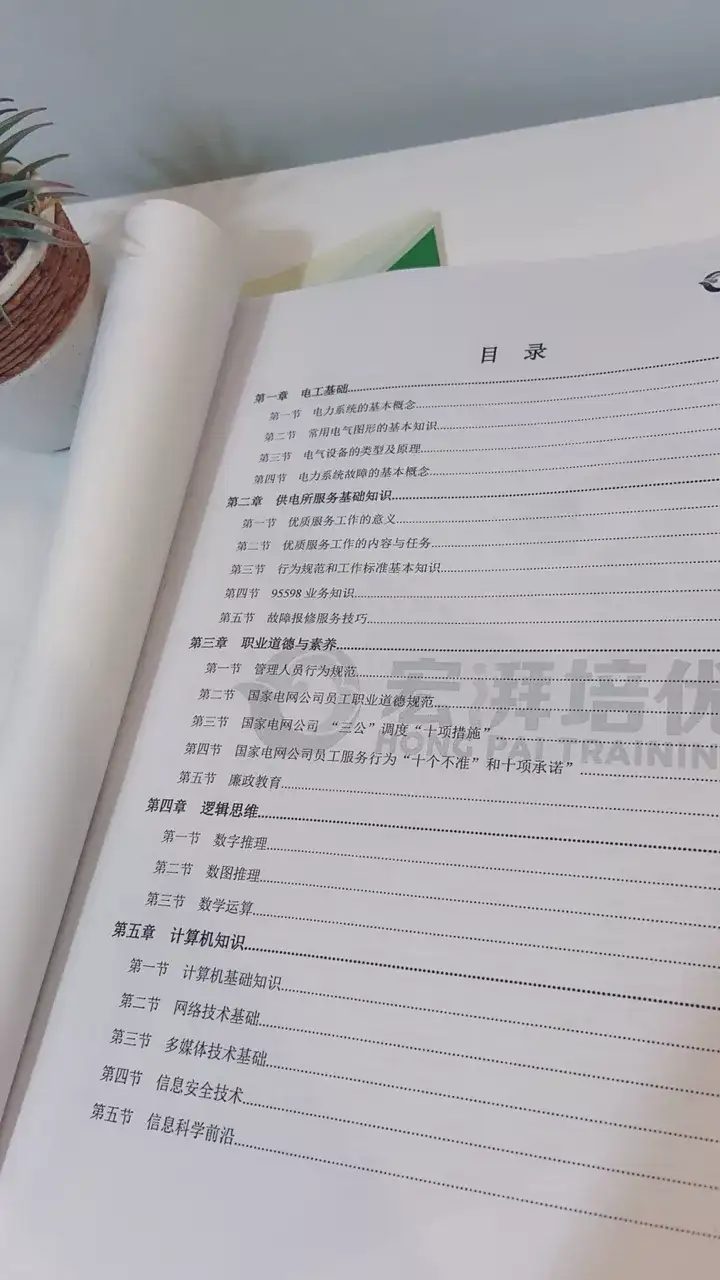 目 录
第一章 电工基础
第一节 电力系统的基本概念
第二节 常用电气图形的基本知识
第三节 电气设备的类型及原理
第四节 电力系统故障的基本概念
第二章 供电所服务基础知识
第一节 优质服务工作的意义
第二节 优质服务工作的内容与任务
第三节 行为规范和工作标准基本知识
第四节 95598 业务知识
第五节 故障报修服务技巧
第三章 职业道德与素养
第一节 管理人员行为规范
第二节 国家电网公司员工职业道德规范
第三节 国家电网公司 “三公”调度“十项措施”
第四节 国家电网公司员工服务行为“十个不准”和十项承诺”
第五节 廉政教育
第四章 逻辑思维
第一节 数字推理
第二节 数图推理
第三节 数学运算
第五章 计算机知识
第一节 计算机基础知识
第二节 网络技术基础
第三节 多媒体技术基础
第四节 信息安全技术
第五节 信息科学前沿
宏湃培优
HONG PAI TRAINING